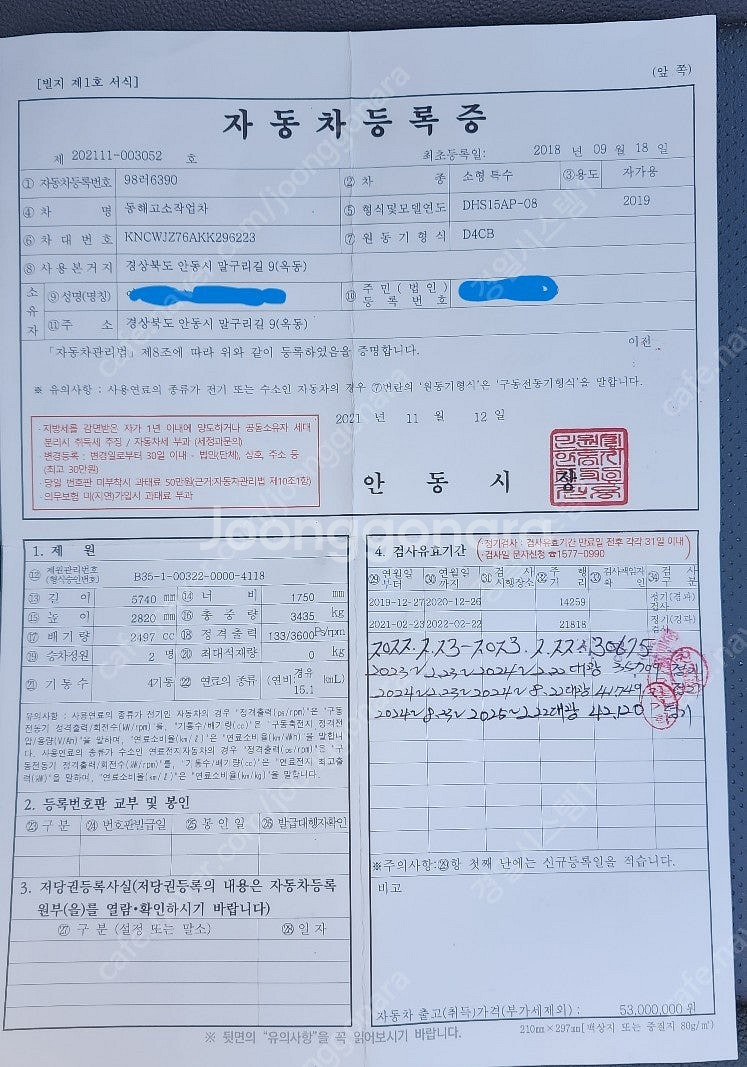 [별지 제1호 서식]
(앞 쪽)
자동차등록증
제 202111-003052 호
최초등록일: 2018 년 09 월 18 일
① 자동차등록번호 98러6390 ② 차 종 소형 특수 ③용도 자가용
④ 차 명 동해고소작업차 ⑤ 형식및모델연도 DHS15AP-08 2019
⑥ 차 대 번 호 KNCWJZ76AKK296223 ⑦ 원 동 기 형 식 D4CB
⑧ 사 용 본 거 지 경상북도 안동시 말구리길 9(옥동)
소유자 ⑨ 성명(명칭) ⑩ 주 민 ( 법 인 ) 등 록 번 호
⑪ 주 소 경상북도 안동시 말구리길 9(옥동)
「자동차관리법」 제8조에 따라 위와 같이 등록하였음을 증명합니다.
이전
※ 유의사항 : 사용연료의 종류가 전기 또는 수소인 자동차의 경우 ⑦번란의 '원동기형식'은 '구동전동기형식'을 말합니다.
2021 년 11 월 12 일
·지방세를 감면받은 자가 1년 이내에 양도하거나 공동소유자 세대
분리시 취득세 추징 / 자동차세 부과 (세정과문의)
·변경등록 : 변경일로부터 30일 이내 - 법인(단체), 상호, 주소 등
(최고 30만원)
·당일 번호판 미부착시 과태료 50만원(근거:자동차관리법 제10조1항)
·의무보험 미(지연)가입시 과태료 부과
안 동 시 장
1. 제 원
⑫ 제원관리번호 (형식승인번호) B35-1-00322-0000-4118
⑬ 길 이 5740 mm ⑭ 너 비 1750 mm
⑮ 높 이 2820 mm ⑯ 총 중 량 3435 kg
⑰ 배 기 량 2497 cc ⑱ 정 격 출 력 133/3600 Ps/rpm
⑲ 승차정원 2 명 ⑳ 최대적재량 0 kg
㉑ 기 통 수 4기통 ㉒ 연료의 종류 경유 (연비: 15.1 km/L)
유의사항 : 사용연료의 종류가 전기인 자동차의 경우 "정격출력(ps/rpm)"은 "구동
전동기 정격출력/회전수(kW/rpm)"를, "기통수/배기량(cc)"은 "구동축전지 정격전
압/용량(V/Ah)"을 말하며, "연료소비율(km/ℓ)"은 "연료소비율(km/kWh)을 말합니
다. 사용연료의 종류가 수소인 연료전지자동차의 경우 "정격출력(ps/rpm)"은 "구
동전동기 정격출력/회전수(kW/rpm)"를, "기통수/배기량(cc)"은 "연료전지 최고출
력(kW)"을 말하며, "연료소비율(km/ℓ)"은 "연료소비율(km/kg)"을 말합니다.
2. 등록번호판 교부 및 봉인
㉓ 구 분 ㉔ 번호판발급일 ㉕ 봉 인 일 ㉖ 발급대행자확인
3. 저당권등록사실(저당권등록의 내용은 자동차등록
원부(을)를 열람·확인하시기 바랍니다)
㉗ 구 분 (설정 또는 말소) ㉘ 일 자
4. 검사유효기간
·정기검사 : 검사유효기간 만료일 전후 각각 31일 이내
·검사일 문자신청 ☎1577-0990
㉙ 연월일부터 ㉚ 연월일까지 ㉛ 검사시행장소 ㉜ 주행거리 ㉝ 검사책임자확인 ㉞ 검사구분
2019-12-27 2020-12-26 14259 정기(경과)검사
2021-02-23 2022-02-22 21818 정기(경과)검사
2022.2.23~2023.2.22 30675
2023~2.23~2024~2.22 대광 정기
2024~2.23~2024~8.22 대광 41749 정기
2024~8.23~2025~2.22 대광 42,120 정기
※주의사항:㉙항 첫째 난에는 신규등록일을 적습니다.
비고
자동차 출고(취득)가격(부가세제외) : 53,000,000 원
210㎜×297㎜[백상지 또는 중질지 80g/㎡]
※ 뒷면의 "유의사항"을 꼭 읽어보시기 바랍니다.
Joonggonara